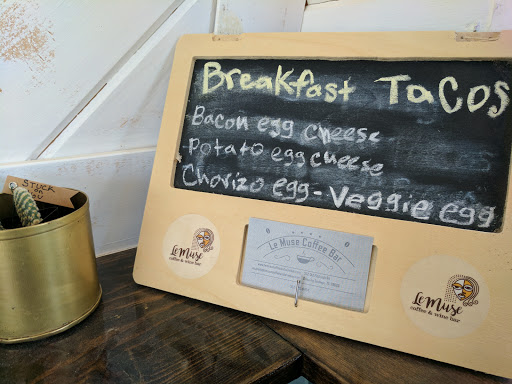 Breakfast Tacos
-Bacon egg cheese
-Potato egg cheese
Chorizo egg-Veggie egg
STUCK
on
YOU
Le Muse
coffee & wine bar
Le Muse Coffee Bar
Le Muse
coffee & wine bar